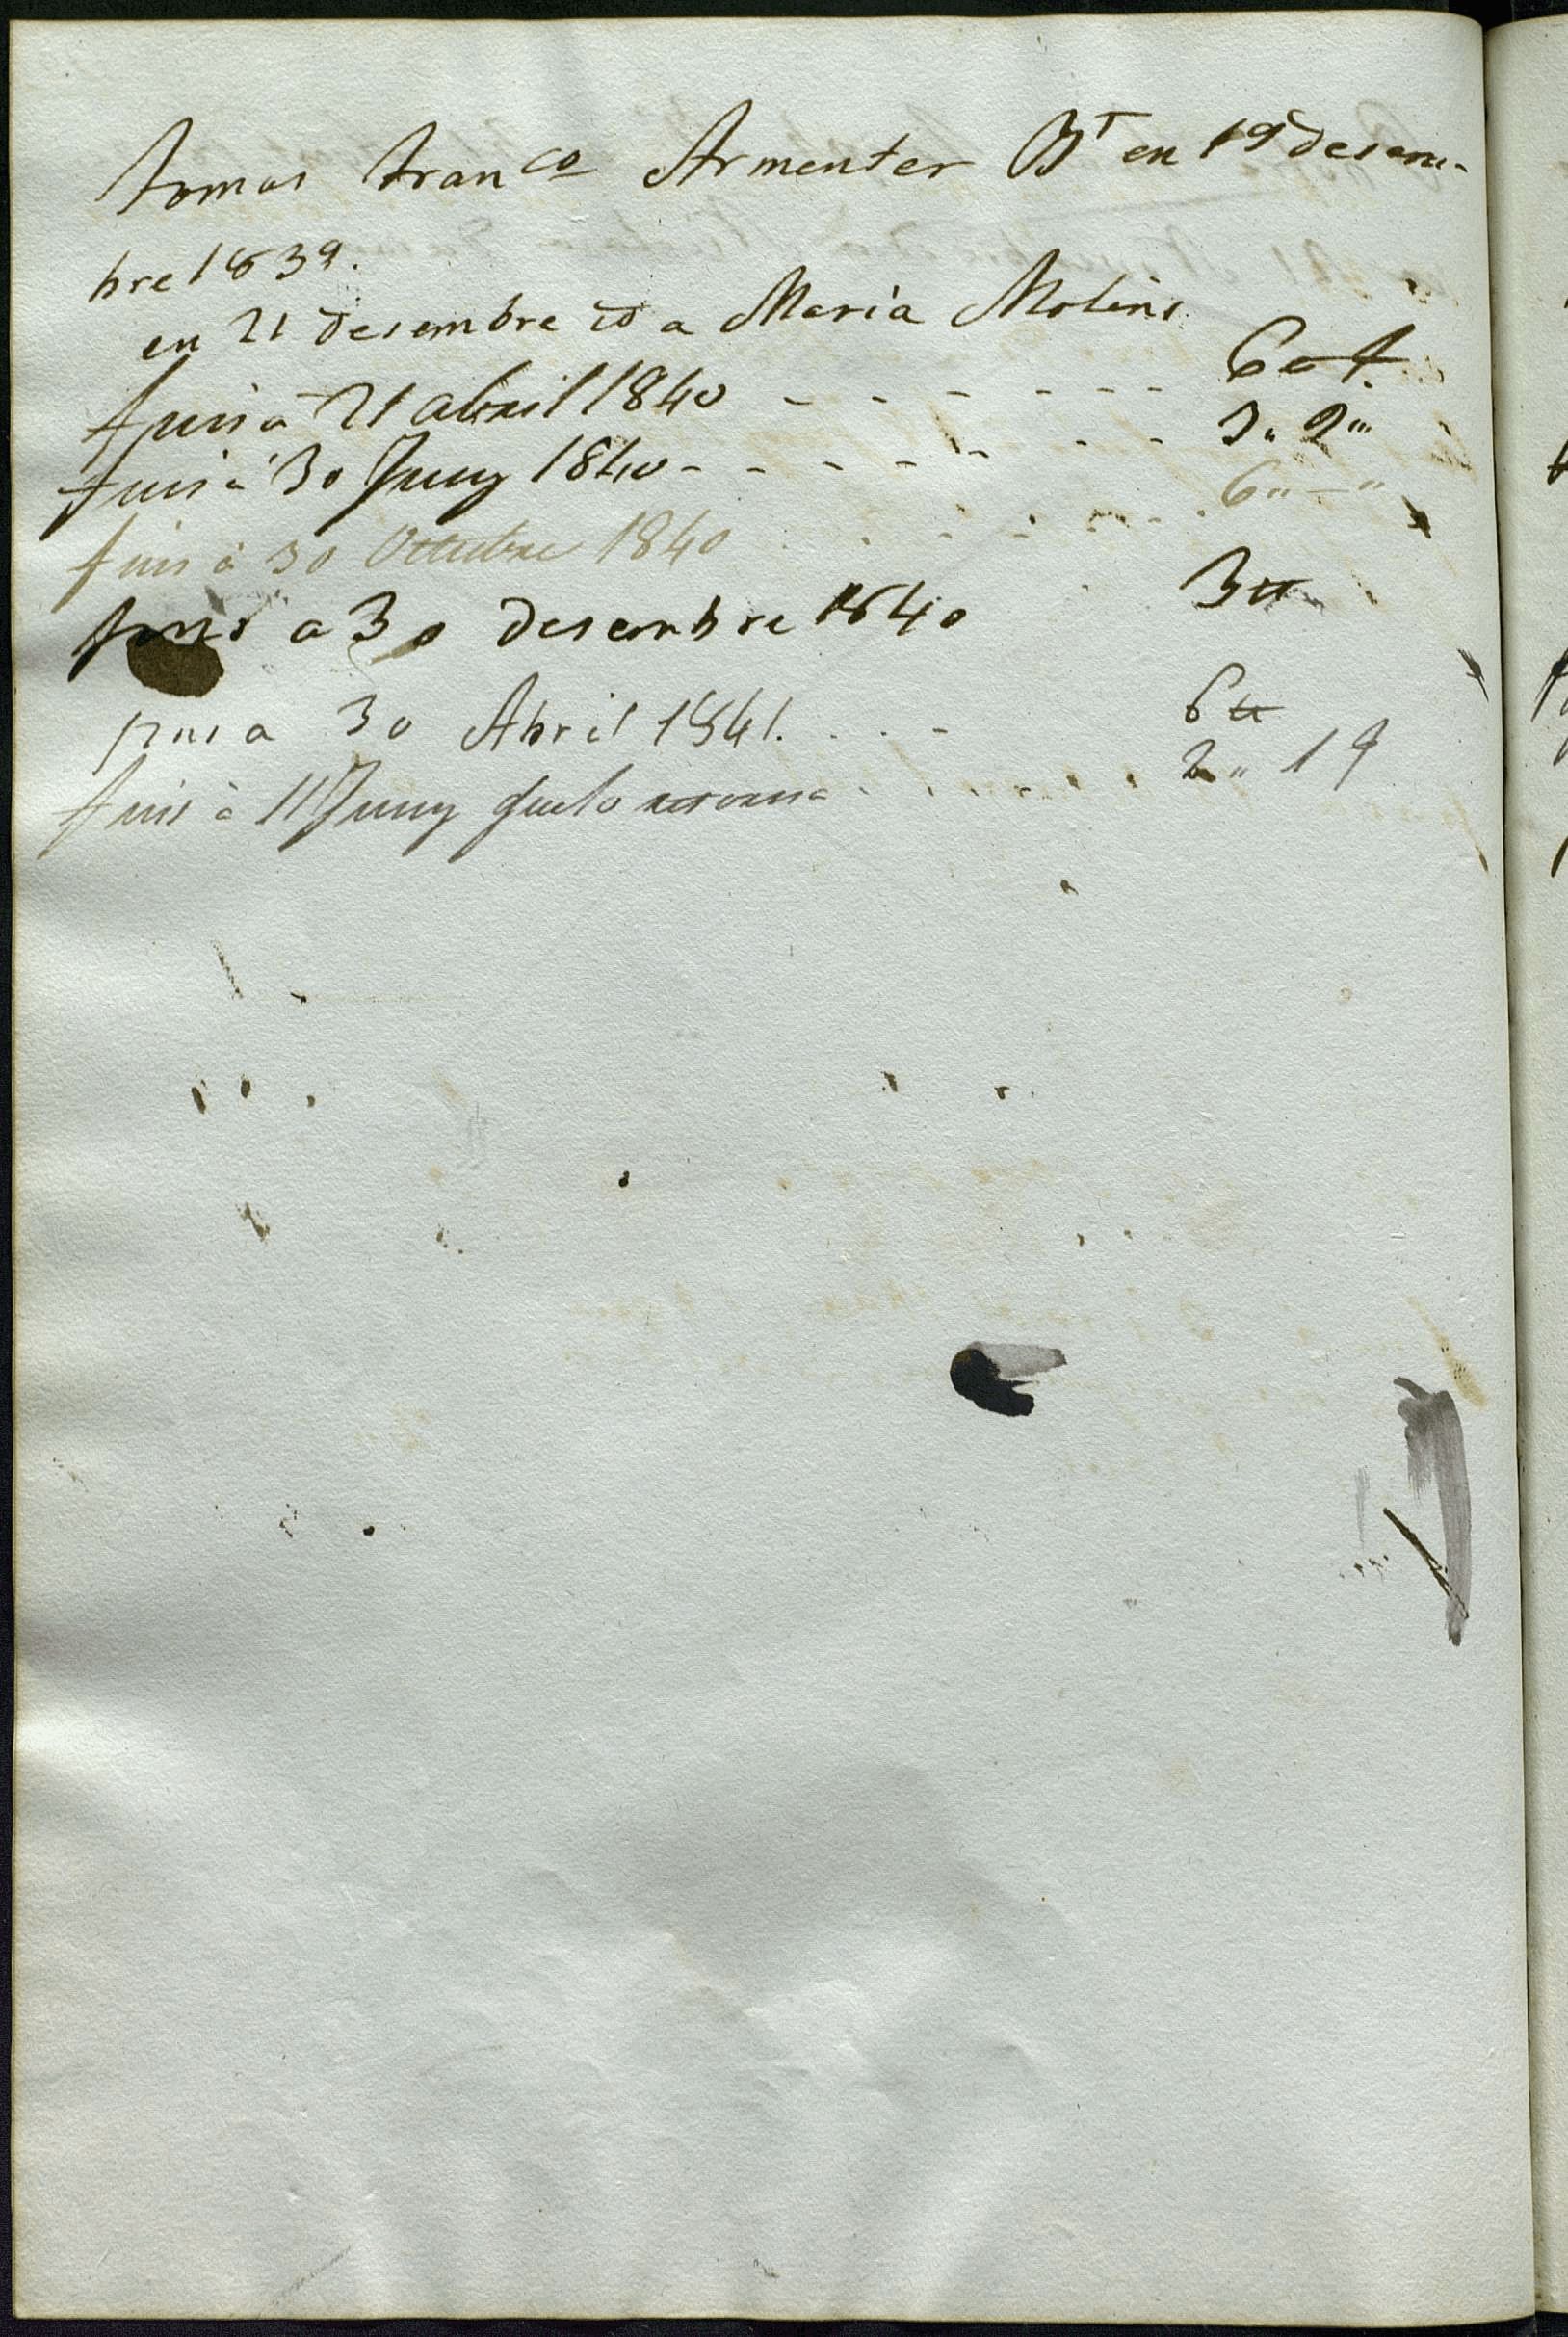 Tomas Franco Armenter Bt en 19 desem-
bre 1839.
en 21 desembre id a Maria Molins
fins á 21 abril 1840 - - - - - - 6
fins á 30 Juny 1840 - - - - - - 3 " 2 "
fins á 30 Octubre 1840 . . . . . . 6 " — "
fins a 30 desembre 1840 3 tt
fins a 30 Abril 1841. . . - 6 tt
fins á 11 Juny que lo 2 " 19